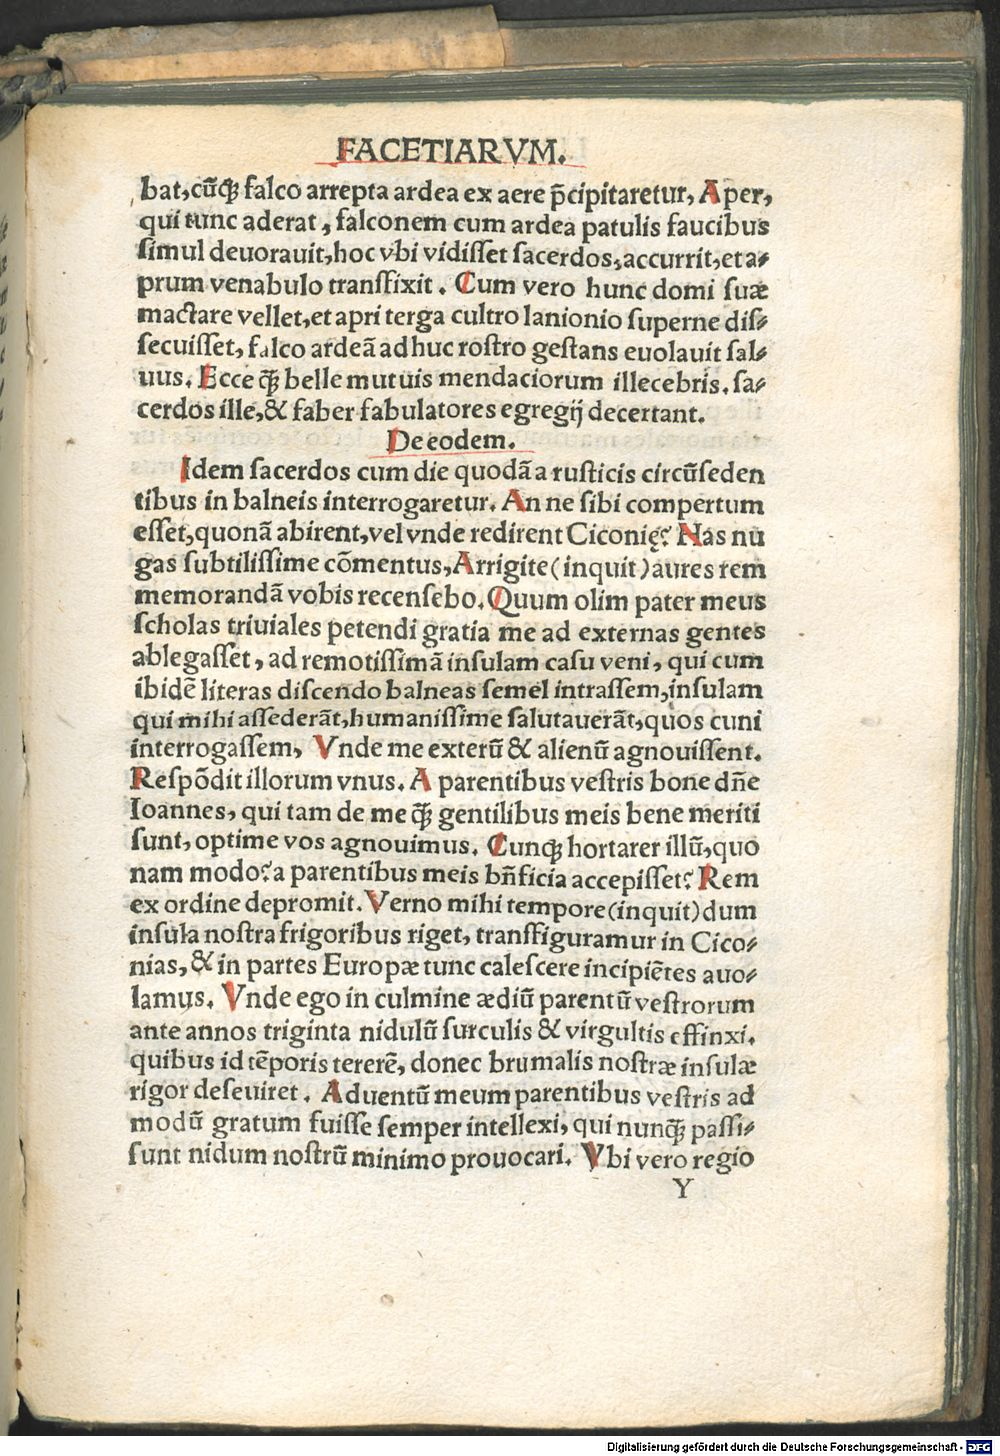 FACETIARVM.
bat,cū́qꝫ falco arrepta ardea ex aere p̄cipitaretur, Aper,
qui tunc aderat, falconem cum ardea patulis faucibus
ſimul deuorauit,hoc vbi vidiſſet ſacerdos,accurrit,et a⸗
prum venabulo tranſfixit. Cum vero hunc domi ſuæ
mactare vellet,et apri terga cultro lanionio ſuperne diſ⸗
ſecuiſſet, falco ardeā adhuc roſtro geſtans euolauit ſal⸗
uus. Ecce qꝫ̄ belle mutuis mendaciorum illecebris. ſa⸗
cerdos ille,& faber fabulatores egregij decertant.
De eodem.
Idem ſacerdos cum die quodā a ruſticis circūſeden
tibus in balneis interrogaretur. An ne ſibi compertum
eſſet,quonā abirent,vel vnde redirent Ciconię? Nas nu
gas ſubtiliſſime cōmentus,Arrigite(inquit)aures rem
memorandā vobis recenſebo.Quum olim pater meus
ſcholas triuiales petendi gratia me ad externas gentes
ablegaſſet, ad remotiſſimā inſulam caſu veni, qui cum
ibidē literas diſcendo balneas ſemel intraſſem,inſulam
qui mihi aſſederāt,humaniſſime ſalutauerāt,quos cuni
interrogaſſem, Vnde me exterū & alienū agnouiſſent.
Reſpōdit illorum vnus. A parentibus veſtris bone dn̄e
Ioannes, qui tam de me qꝫ̄ gentilibus meis bene meriti
ſunt, optime vos agnouimus. Cunqꝫ hortarer illū,quo
nam modo?a parentibus meis bn̄ficia accepiſſet? Rem
ex ordine depromit. Verno mihi tempore(inquit)dum
inſula noſtra frigoribus riget, tranſfiguramur in Cico⸗
nias, & in partes Europæ tunc caleſcere incipiētes auo⸗
lamus. Vnde ego in culmine ædiū parentū veſtrorum
ante annos triginta nidulū ſurculis & virgultis effinxi.
quibus id tēporis tererē, donec brumalis noſtræ inſulæ
rigor deſeuiret. Aduentū meum parentibus veſtris ad
modū gratum fuiſſe ſemper intellexi, qui nunqꝫ̄ paſſi⸗
ſunt nidum noſtrū minimo prouocari. Vbi vero regio
Y
Digitalisierung gefördert durch die Deutsche Forschungsgemeinschaft - DFG